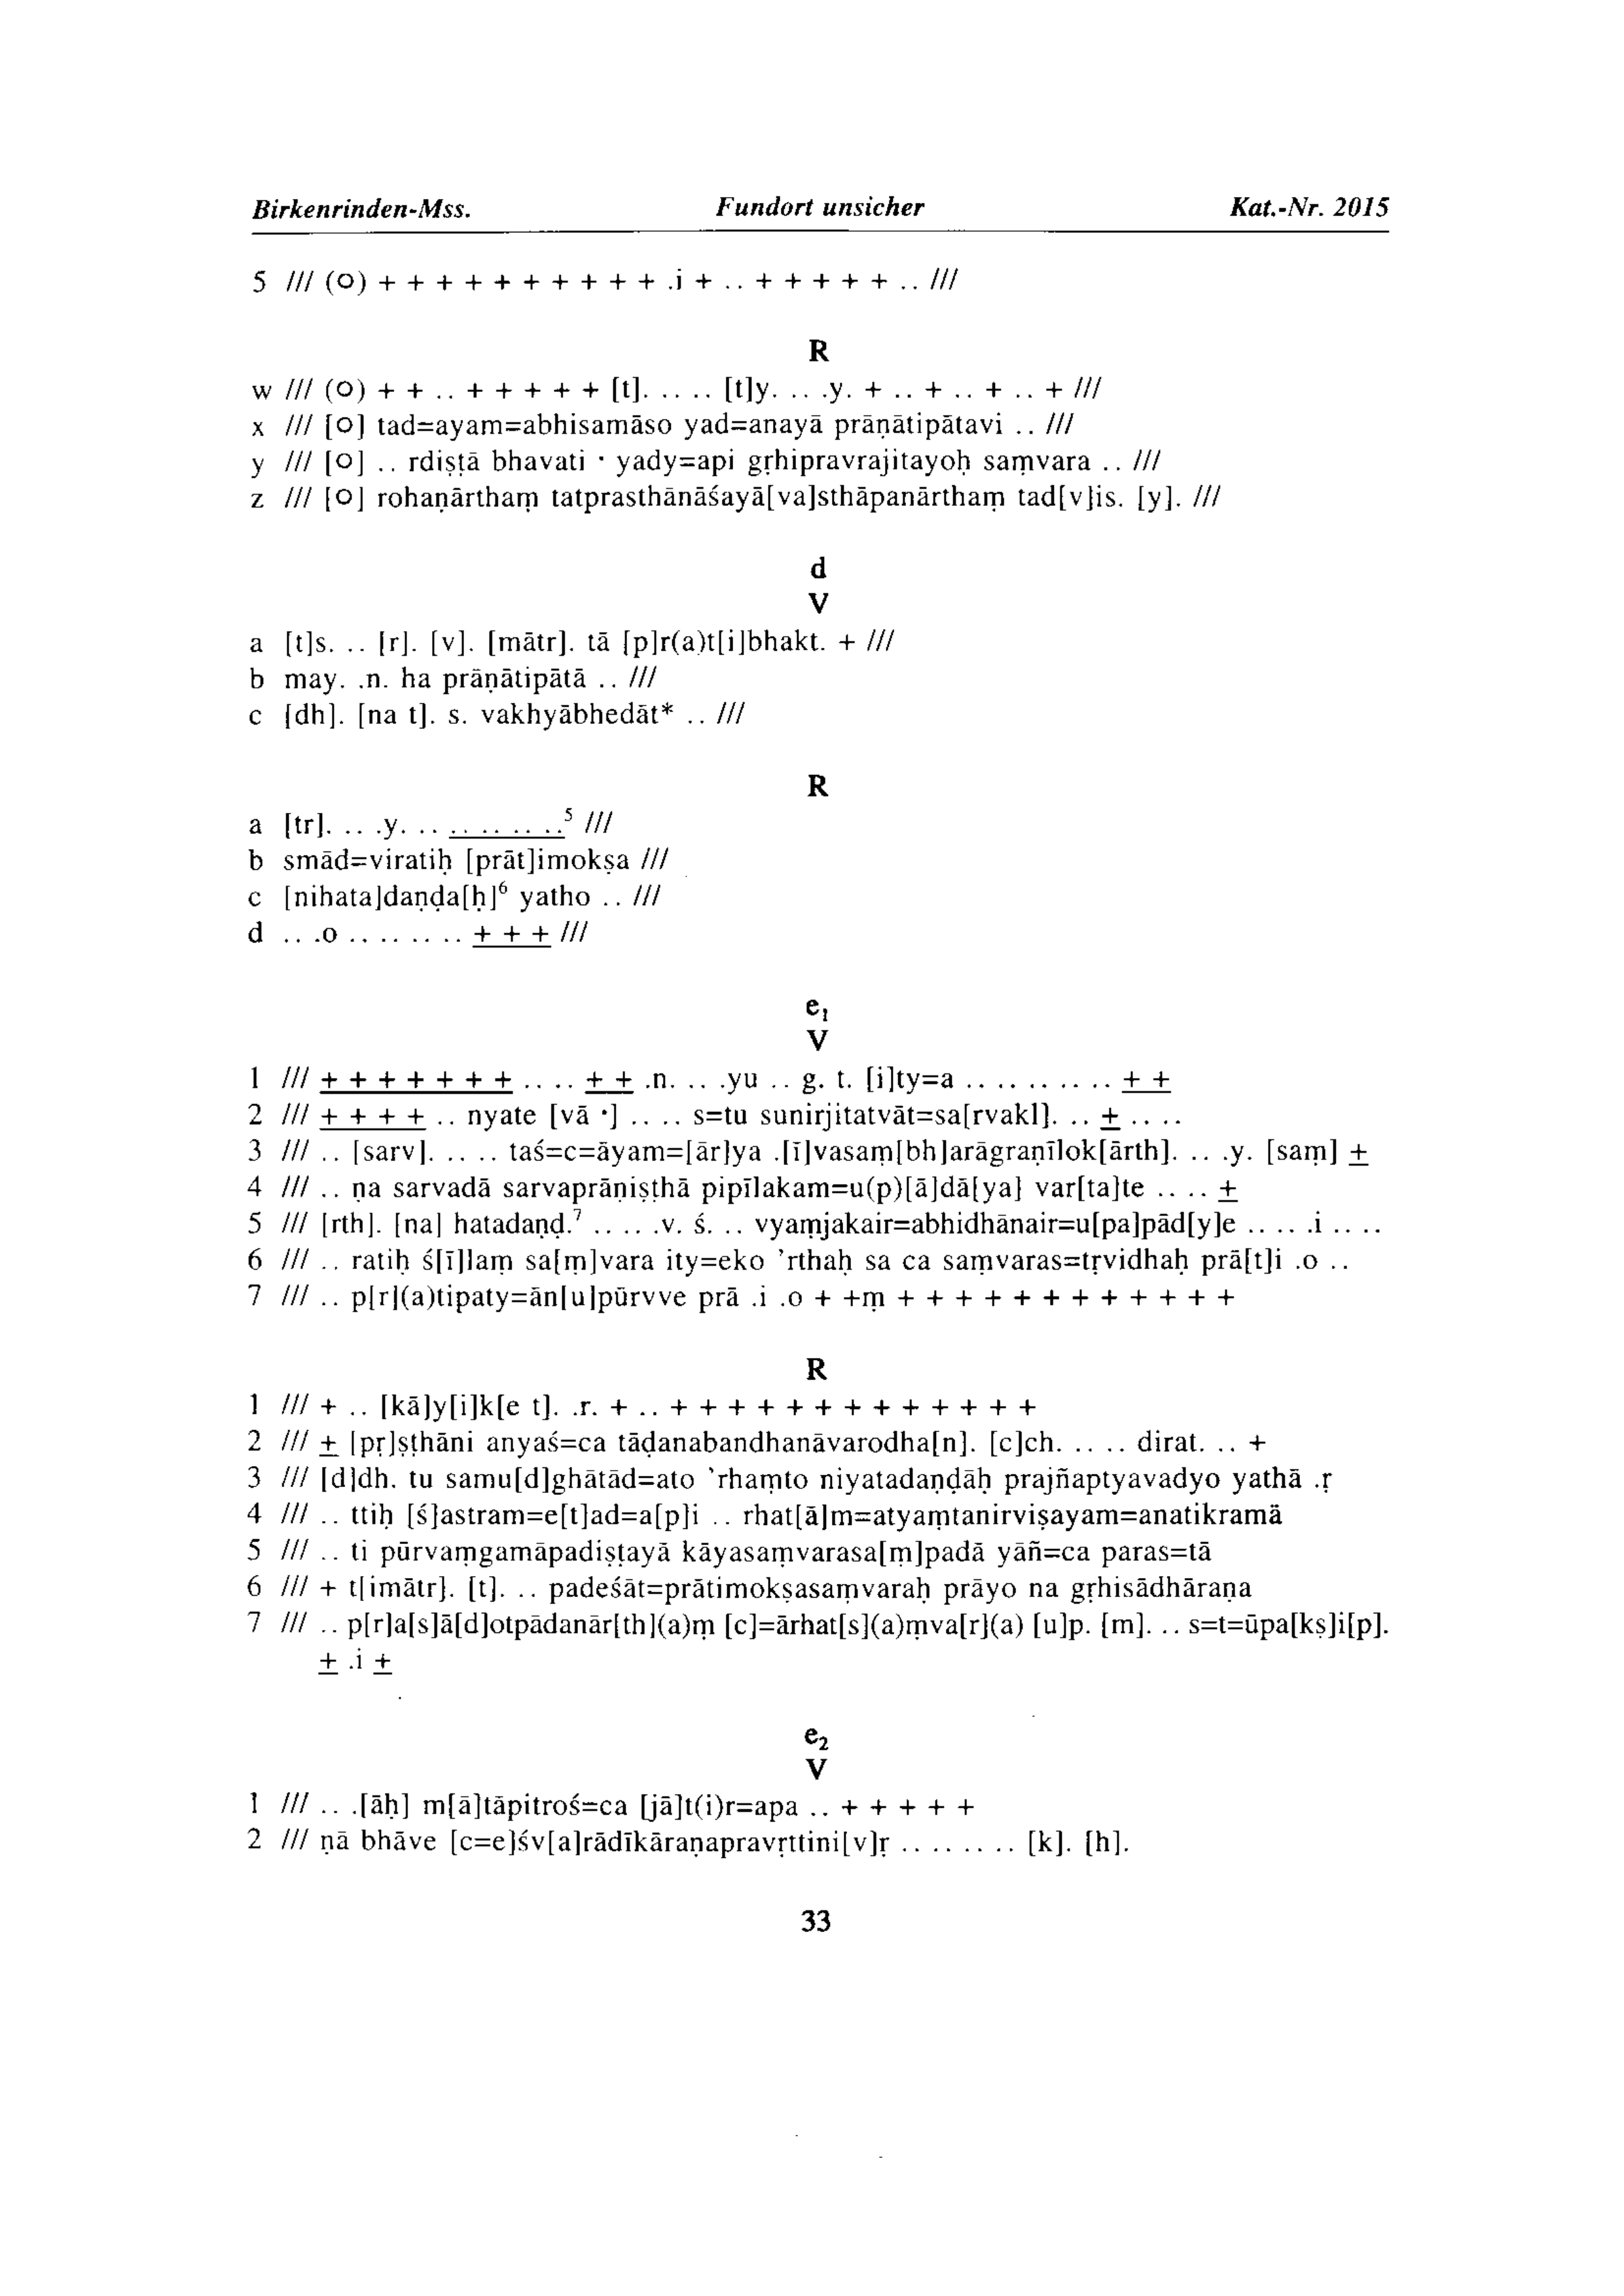 Birkenrinden-Mss. Fundort unsicher Kat.-Nr. 2015
5 /// (O) + + + + + + + + + + .i + .. + + + + + .. ///
R
w /// (O) + + .. + + + + + [t]. .. .. [t]y. .. .y. + .. + .. + .. + ///
x /// [O] tad=ayam=abhisamāso yad=anayā prāṇātipātavi .. ///
y /// [O] .. rdiṣṭā bhavati · yady=api gṛhipravrajitayoḥ saṃvara .. ///
z /// [O] rohaṇārthaṃ tatprasthānāśayā[va]sthāpanārthaṃ tad[v]is. [y]. ///
d
V
a [t]s. .. [r]. [v]. [mātr]. tā [p]r(a)t[i]bhakt. + ///
b may. .n. ha prāṇātipātā .. ///
c [dh]. [na t]. s. vakhyābhedāt* .. ///
R
a [tr]. .. .y. .. .. .. .. ..⁵ ///
b smād=viratiḥ [prāt]imokṣa ///
c [nihata]daṇḍa[ḥ]⁶ yatho .. ///
d .. .o .. .. .. .. + + + ///
e₁
V
1 /// + + + + + + + .. .. + + .n. .. .yu .. g. t. [i]ty=a .. .. .. .. .. + +
2 /// + + + + .. nyate [vā ·] .. .. s=tu sunirjitatvāt=sa[rvakl]. .. + .. ..
3 /// .. [sarv]. .. .. taś=c=āyam=[ār]ya .[ī]vasaṃ[bh]arāgraṇīlok[ārth]. .. .y. [saṃ] +
4 /// .. ṇa sarvadā sarvaprāṇiṣṭhā pipīlakam=u(p)[ā]dā[ya] var[ta]te .. .. +
5 /// [rth]. [na] hatadaṇḍ.⁷ .. .. .v. ś. .. vyaṃjakair=abhidhānair=u[pa]pād[y]e .. .. .i .. ..
6 /// .. ratiḥ ś[ī]laṃ sa[ṃ]vara ity=eko ’rthaḥ sa ca saṃvaras=tṛvidhaḥ prā[t]i .o ..
7 /// .. p[r](a)tipaty=ān[u]pūrvve prā .i .o + +ṃ + + + + + + + + + + + +
R
1 /// + .. [kā]y[i]k[e t]. .r. + .. + + + + + + + + + + + + +
2 /// + [pṛ]ṣṭhāni anyaś=ca tāḍanabandhanāvarodha[n]. [c]ch. .. .. dirat. .. +
3 /// [d]dh. tu samu[d]ghātād=ato ’rhaṃto niyatadaṇḍāḥ prajñaptyavadyo yathā .ṛ
4 /// .. ttiḥ [ś]astram=e[t]ad=a[p]i .. rhat[ā]m=atyaṃtanirviṣayam=anatikramā
5 /// .. ti pūrvaṃgamāpadiṣṭayā kāyasaṃvarasa[ṃ]padā yāñ=ca paras=tā
6 /// + t[imātr]. [t]. .. padeśāt=prātimokṣasaṃvaraḥ prāyo na gṛhisādhāraṇa
7 /// .. p[r]a[s]ā[d]otpādanār[th](a)ṃ [c]=ārhat[s](a)ṃva[r](a) [u]p. [m]. .. s=t=ūpa[kṣ]i[p].
+ .i +
e₂
V
1 /// .. .[āḥ] m[ā]tāpitroś=ca [jā]t(i)r=apa .. + + + + +
2 /// ṇā bhāve [c=e]śv[a]rādīkāraṇapravṛttini[v]ṛ .. .. .. .. [k]. [h].
33